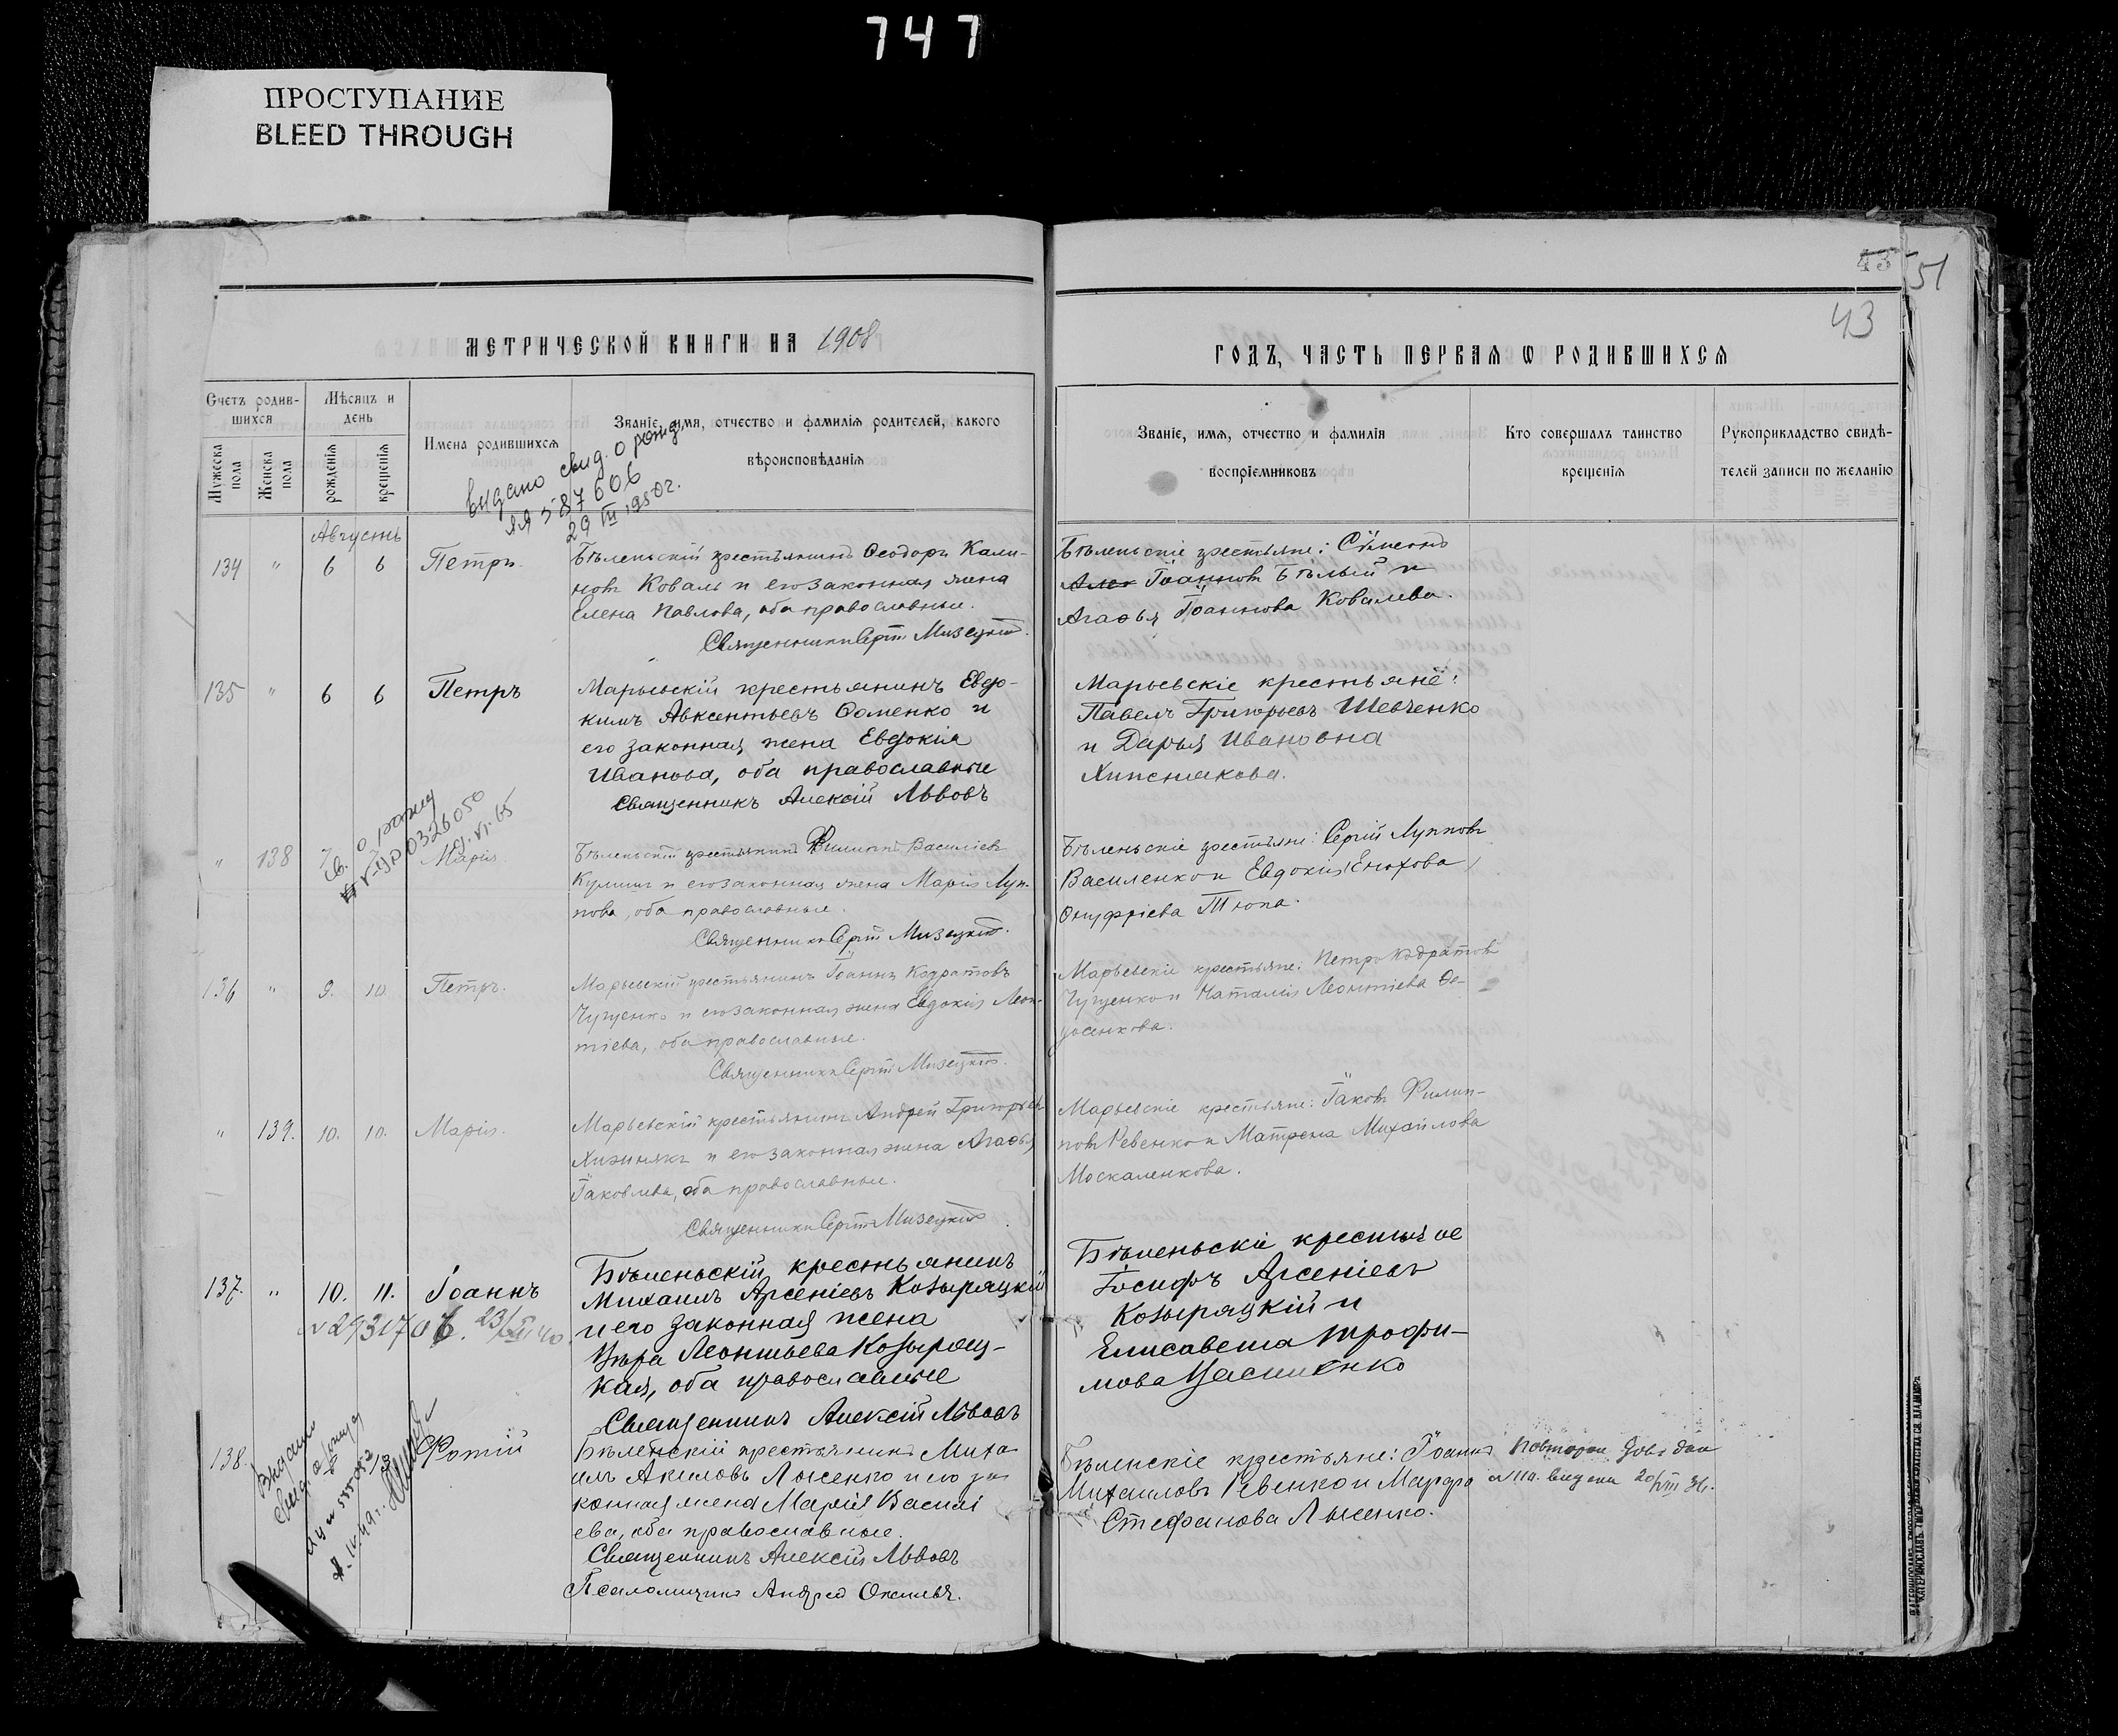 747
ПРОСТУПАНИЕ
BLEED THROUGH
43
51
43
МЕТРИЧЕСКОЙ КНИГИ НА 1908
ГОДЪ, ЧАСТЬ ПЕРВАЯ Ѡ РОДИВШИХСЯ
Счетъ родив-
шихся
Мужеска пола
Женска пола
Мѣсяцъ и
день
рожденія
крещенія
Имена родившихся
Званіе, имя, отчество и фамилія родителей, какого
вѣроисповѣданія
Званіе, имя, отчество и фамилія
воспріемниковъ
Кто совершалъ таинство
крещенія
Рукоприкладство свидѣ-
телей записи по желанію
видано свид. о рожд
ЯЯ 587606
29 III 1950г.
Августъ
134 " 6 6 Петръ.
Бѣленьскій крестьянинъ Ѳеодоръ Кали-
новъ Коваль и его законная жена
Елена Павлова, оба православные.
Священникъ Сергій Мизецкій.
Бѣленьскіе крестьяне: Сѵмеонъ
Іоанновъ Бѣлый и
Агаѳья Іоаннова Ковалева.
135 " 6 6 Петръ
Марьевскій крестьянинъ Евдо-
кимъ Авксентьевъ Ѳоменко и
его законная жена Евдокія
Иванова, оба православные
Священникъ Алексій Львовъ
Марьевскіе крестьяне:
Павелъ Григорьевъ Шевченко
и Дарья Ивановна
Св. о рожд
0326050
" 138 7 Марія
Бѣленьскій крестьянинъ Филиппъ Василіевъ
Кулишъ и его законная жена Марія Луп-
пова, оба православные.
Священникъ Сергій Мизецкій.
Бѣленьскіе крестьяне: Сергій Лупповъ
Василенко и Евдокія (Енюхова)
Онуфріева Тюпа.
136 " 9. 10 Петръ.
Марьевскій крестьянинъ Іоаннъ Кодратовъ
Чугуенко и его законная жена Евдокія Леон-
тіева, оба православные.
Священникъ Сергій Мизецкій.
Марьевскіе крестьяне: Петръ Кодратовъ
Чугуенко и Наталія Леонтіева Ѳе-
" 139. 10. 10. Марія.
Марьевскій крестьянинъ Андрей Григорьевъ
Хижнякъ и его законная жена Агаѳья
Іаковлева, оба православные.
Священникъ Сергій Мизецкій
Марьевскіе крестьяне: Іаковъ Филип-
повъ Ревенко и Матрена Михайлова
Москаленкова.
137. " 10. 11. Іоаннъ
Бѣленьскій крестьянинъ
Михаилъ Арсеніевъ Козыряцкій
и его законная жена
Вѣра Леонтьева Козыряц-
кая, оба православные
Священникъ Алексій Львовъ
Бѣленьскіе крестьяне
Іосифъ Арсеніевъ
Козыряцкій и
Елисавета Трофи-
мова Василенко
138. Фотій
Видано
свид. о рожд
Бѣленскій крестьянинъ Миха
илъ Акиловъ Лысенко и его за
конная жена Марія Василі
ева, оба православные.
Священникъ Алексій Львовъ
Псаломщикъ Андрей
Бѣленскіе крестьяне: Іоаннъ
Михаиловъ Ревенко и Марфа
Стефанова Лысенко.
видана 20/VIII 36.